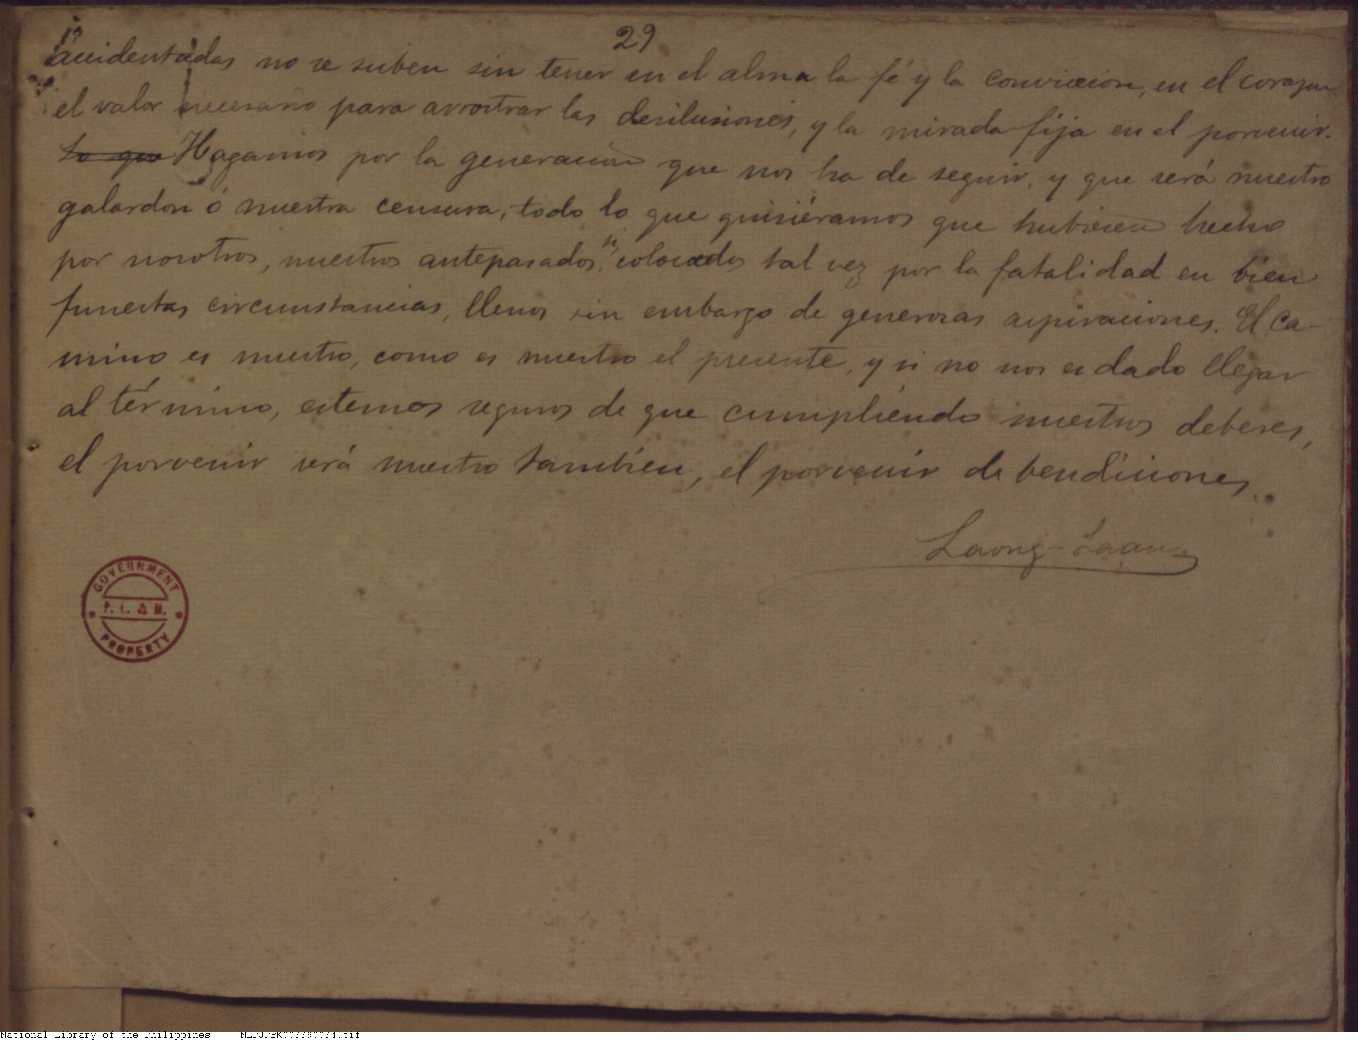 29
accidentadas no se suben sin tener en el alma la fé y la conviccion, en el corazon
el valor necesario para arrostrar las desilusiones, y la mirada fija en el porvenir.
lo que Hagamos por la generacion que nos ha de seguir, y que será nuestro
galardon ó nuestra censura, todo lo que quisiéramos que hubiesen hecho
por nosotros, nuestros antepasados, si, colocados tal vez por la fatalidad en bien
funestas circunstancias, llenos sin embargo de generosas aspiraciones. El ca-
mino es nuestro, como es nuestro el presente, y si no nos es dado llegar
al término, estemos seguros de que cumpliendo nuestros deberes,
el porvenir será nuestro tambien, el porvenir de bendiciones.
Laong-Laan
GOVERNMENT
P. L. & M.
PROPERTY
National Library of the Philippines